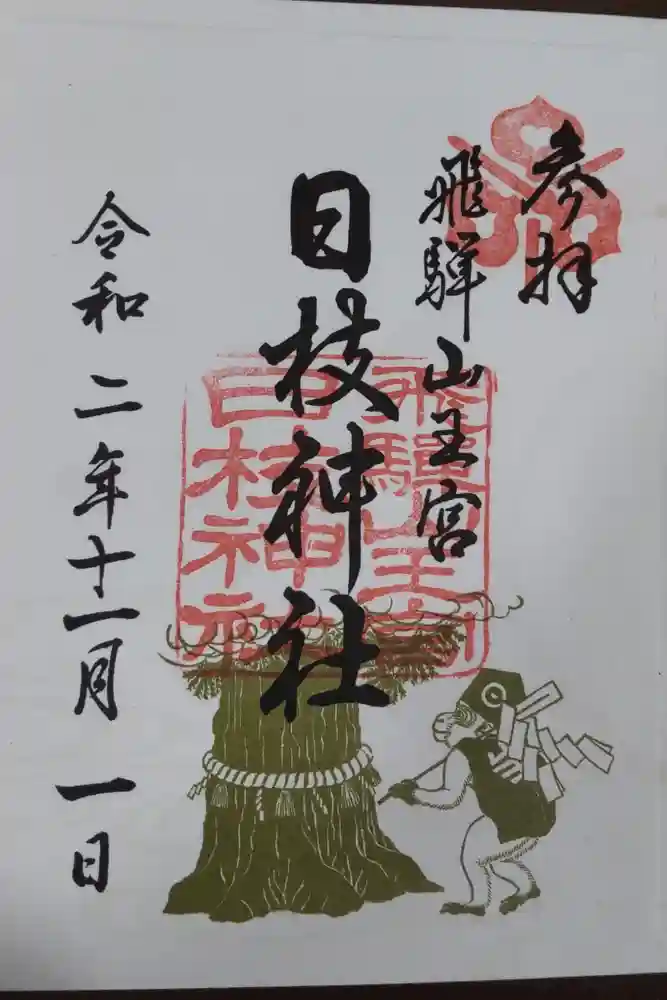 参拝
飛騨山王宮
日枝神社
飛騨山王宮
日枝神社
令和二年十一月一日